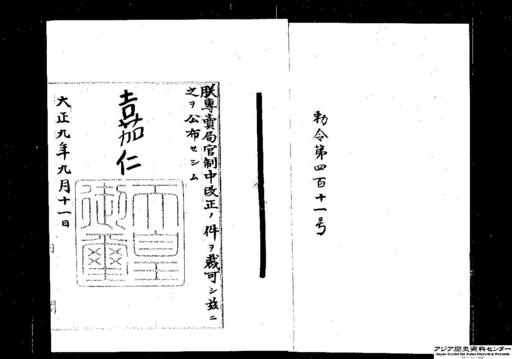 勅令第四百十一号
朕専賣局官制中改正ノ件ヲ裁可シ茲ニ
之ヲ公布セシム
嘉仁
天皇御璽
大正九年九月十一日
アジア歴史資料センター
Japan Center for Asian Historical Records